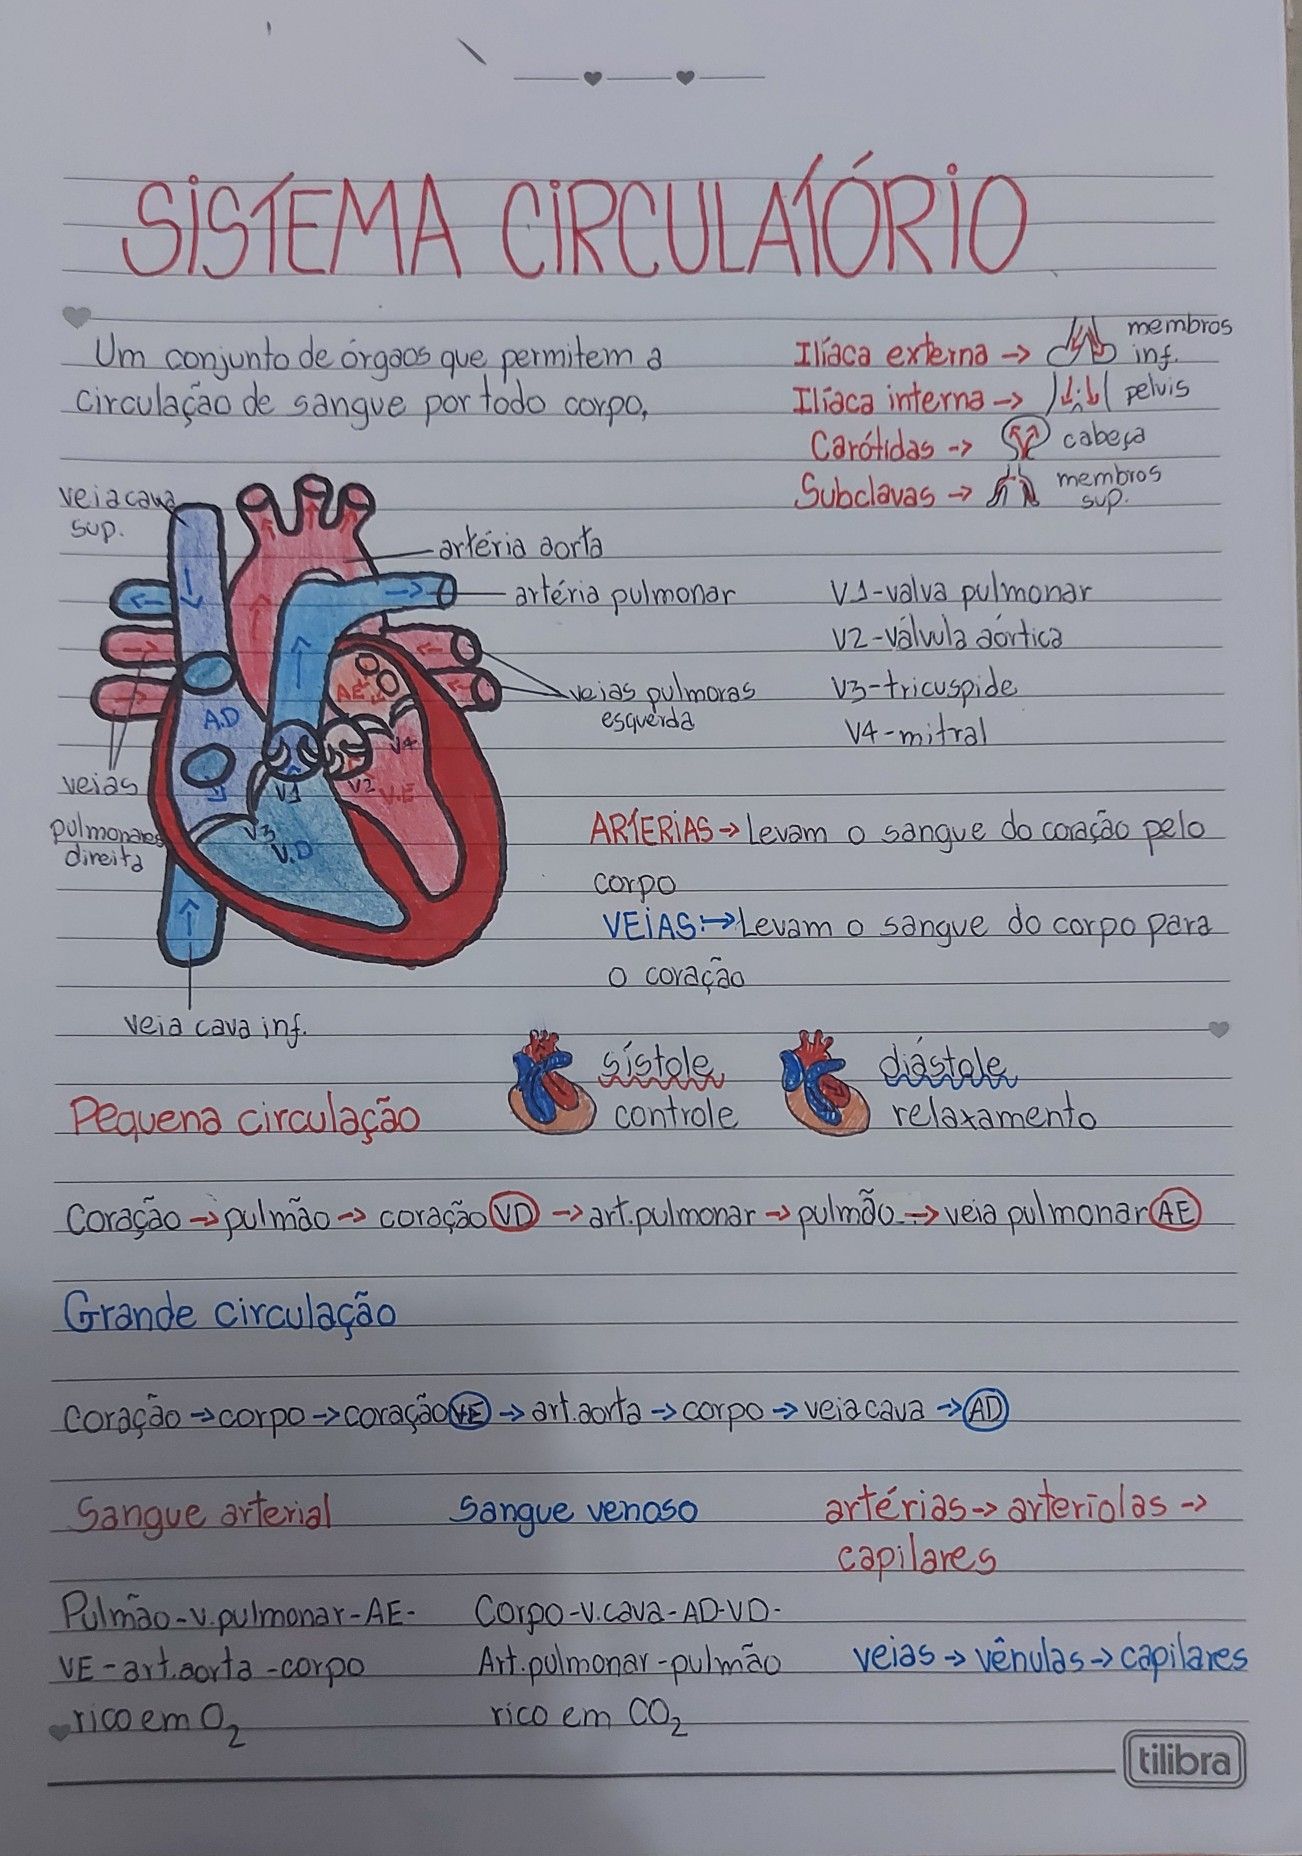 SISTEMA CIRCULATÓRIO
Um conjunto de órgãos que permitem a
circulação de sangue por todo corpo,
Ilíaca externa → membros
inf.
Ilíaca interna → pelvis
Carótidas → cabeça
Subclavas → membros
sup.
veia cava
sup.
artéria aorta
artéria pulmonar
veias pulmoras
esquerda
AE
A.D
V4
V1
V2
V.E
V3
V.D
veias
pulmonares
direita
veia cava inf.
V1-valva pulmonar
V2-válvula aórtica
V3-tricuspide
V4-mitral
ARTERIAS → Levam o sangue do coração pelo
corpo
VEIAS: → Levam o sangue do corpo para
o coração
sístole
controle
diástole
relaxamento
Pequena circulação
Coração → pulmão → coração VD → art.pulmonar → pulmão → veia pulmonar AE
Grande circulação
Coração → corpo → coração VE → art.aorta → corpo → veia cava → AD
Sangue arterial
Pulmão-v.pulmonar-AE-
VE-art.aorta-corpo
rico em O2
Sangue venoso
Corpo-v.cava-AD-VD-
Art.pulmonar-pulmão
rico em CO2
artérias → arteríolas →
capilares
veias → vênulas → capilares
tilibra